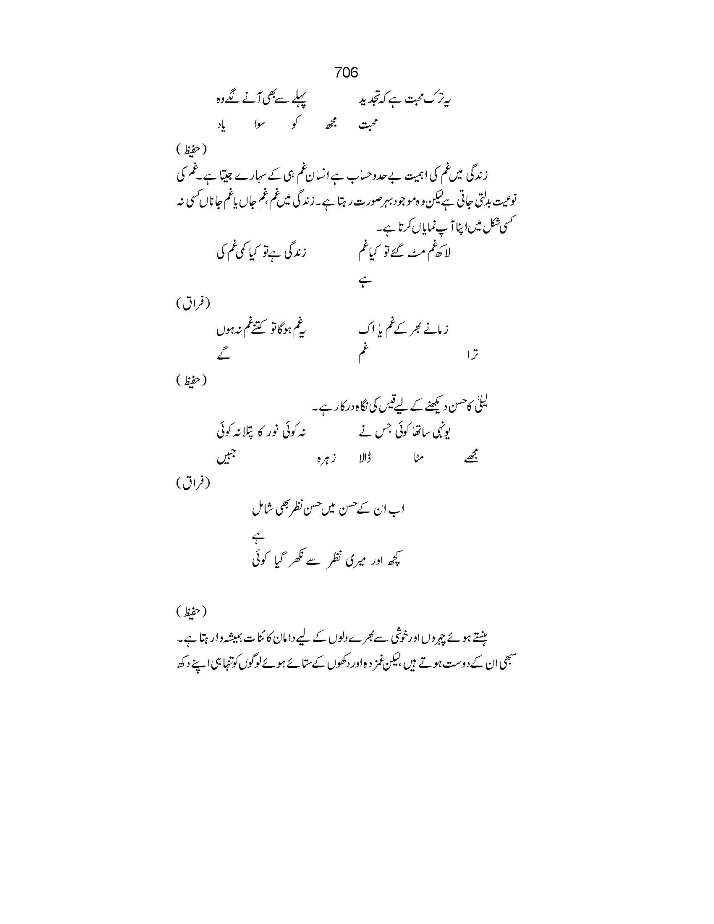 706
یہ ترک محبت ہے کہ تجدید پہلے سے بھی آنے لگے وہ
محبت مجھ کو سوا یاد
(حفیظ)
زندگی میں غم کی اہمیت بے حد و حساب ہے انسان غم ہی کے سہارے جیتا ہے۔ غم کی
نوعیت بدلتی جاتی ہے لیکن وہ موجود بہر صورت رہتا ہے۔ زندگی میں غم، غم جاں یا غم جاناں کسی نہ
کسی شکل میں اپنا آپ نمایاں کرتا ہے۔
لاکھ غم مٹ گئے تو کیا غم زندگی ہے تو کیا کمی غم کی
ہے
(فراق)
زمانے بھر کے غم یا اک یہ غم ہوگا تو کتنے غم نہ ہوں
ترا غم گے
(حفیظ)
لیلیٰ کا حسن دیکھنے کے لیے قیس کی نگاہ درکار ہے۔
یونہی ساتھا کوئی جس نے نہ کوئی نور کا پتلا نہ کوئی
مجھے مٹا ڈالا زہرہ جبیں
(فراق)
اب ان کے حسن میں حسن نظر بھی شامل
ہے
کچھ اور میری نظر سے نکھر گیا کوئی
(حفیظ)
ہنستے ہوئے چہروں اور خوشی سے بھرے دلوں کے لیے دامان کائنات ہمیشہ وا رہتا ہے۔
سبھی ان کے دوست ہوتے ہیں، لیکن غمزدہ اور دکھوں کے ستائے ہوئے لوگوں کو تنہا ہی اپنے دکھ